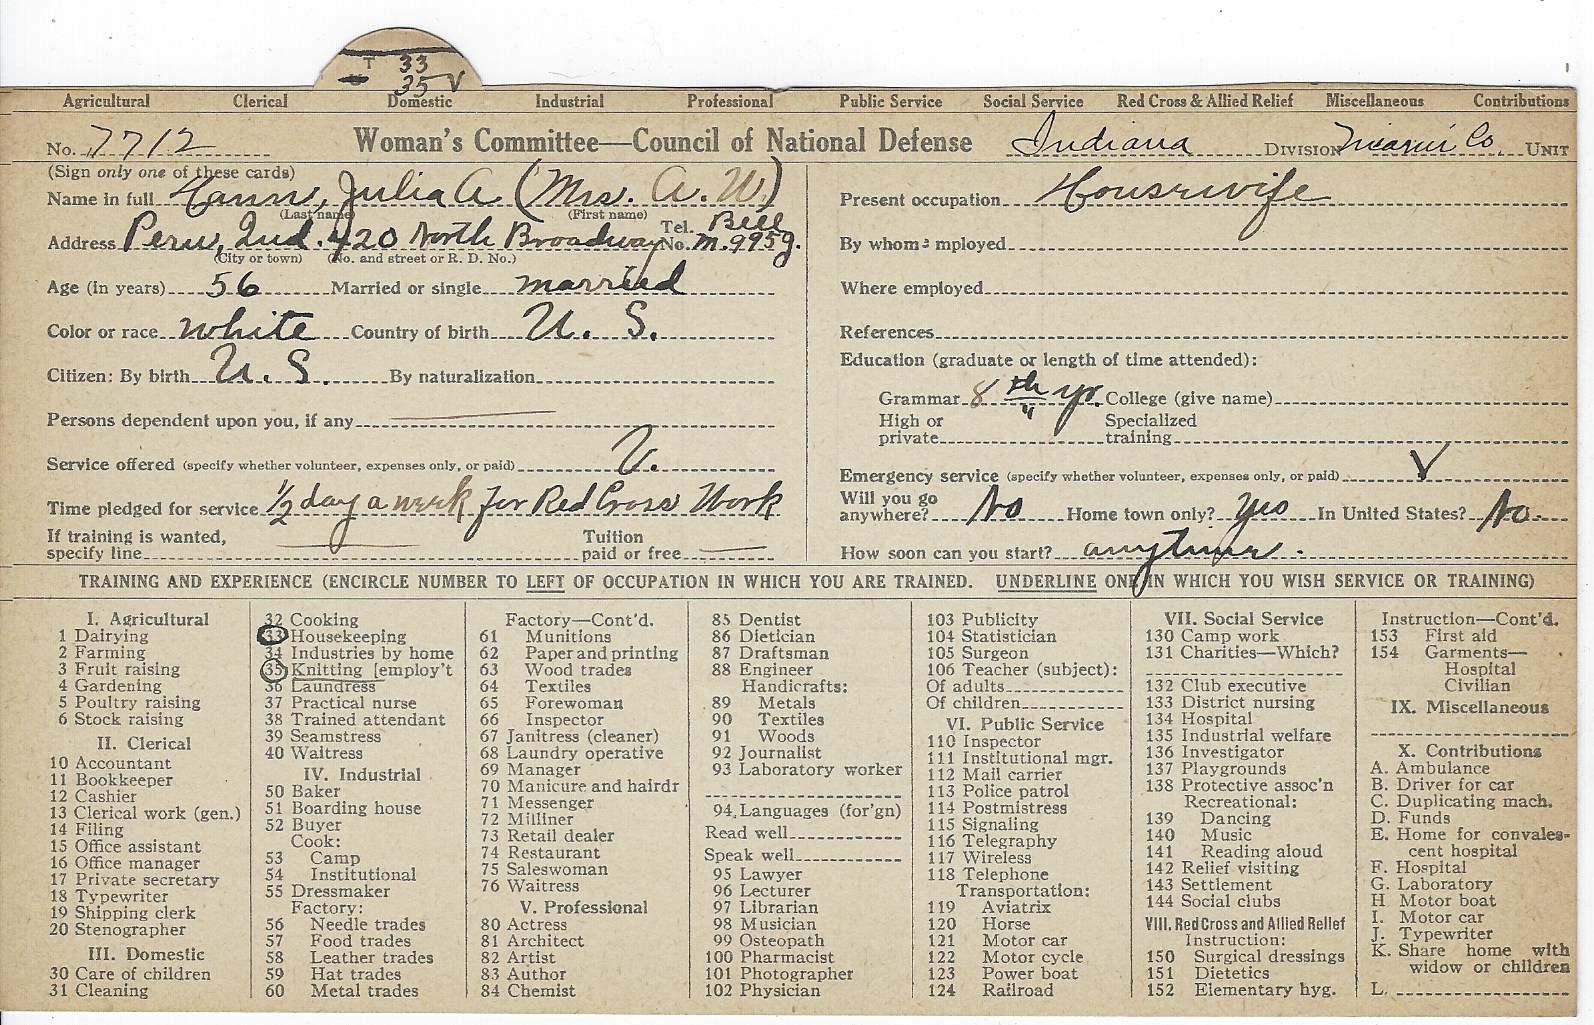 T 33
35 V
Agricultural Clerical Domestic Industrial Professional Public Service Social Service Red Cross & Allied Relief Miscellaneous Contributions
No. 7712 Woman's Committee—Council of National Defense Indiana Division Miami Co. Unit
(Sign only one of these cards)
Name in full Hann, Julia A (Mrs. A. W.)
(Last name) (First name)
Address Peru, Ind. 420 North Broadway Tel. No. Bell M. 995 g.
(City or town) (No. and street or R. D. No.)
Age (in years) 56 Married or single married
Color or race white Country of birth U. S.
Citizen: By birth U. S. By naturalization
Persons dependent upon you, if any
Service offered (specify whether volunteer, expenses only, or paid) V.
Time pledged for service 1/2 day a week for Red Cross Work
If training is wanted, specify line Tuition paid or free
Present occupation Housewife
By whom employed
Where employed
References
Education (graduate or length of time attended):
Grammar 8th yr. College (give name)
High or private Specialized training
Emergency service (specify whether volunteer, expenses only, or paid) V
Will you go anywhere? No Home town only? Yes In United States? No.
How soon can you start? anytime.
TRAINING AND EXPERIENCE (ENCIRCLE NUMBER TO LEFT OF OCCUPATION IN WHICH YOU ARE TRAINED. UNDERLINE ONE IN WHICH YOU WISH SERVICE OR TRAINING)
I. Agricultural
1 Dairying
2 Farming
3 Fruit raising
4 Gardening
5 Poultry raising
6 Stock raising
II. Clerical
10 Accountant
11 Bookkeeper
12 Cashier
13 Clerical work (gen.)
14 Filing
15 Office assistant
16 Office manager
17 Private secretary
18 Typewriter
19 Shipping clerk
20 Stenographer
III. Domestic
30 Care of children
31 Cleaning
32 Cooking
33 Housekeeping
34 Industries by home
35 Knitting [employ't
36 Laundress
37 Practical nurse
38 Trained attendant
39 Seamstress
40 Waitress
IV. Industrial
50 Baker
51 Boarding house
52 Buyer
Cook:
53 Camp
54 Institutional
55 Dressmaker
Factory:
56 Needle trades
57 Food trades
58 Leather trades
59 Hat trades
60 Metal trades
Factory—Cont'd.
61 Munitions
62 Paper and printing
63 Wood trades
64 Textiles
65 Forewoman
66 Inspector
67 Janitress (cleaner)
68 Laundry operative
69 Manager
70 Manicure and hairdr
71 Messenger
72 Milliner
73 Retail dealer
74 Restaurant
75 Saleswoman
76 Waitress
V. Professional
80 Actress
81 Architect
82 Artist
83 Author
84 Chemist
85 Dentist
86 Dietician
87 Draftsman
88 Engineer
Handicrafts:
89 Metals
90 Textiles
91 Woods
92 Journalist
93 Laboratory worker
94. Languages (for'gn)
Read well
Speak well
95 Lawyer
96 Lecturer
97 Librarian
98 Musician
99 Osteopath
100 Pharmacist
101 Photographer
102 Physician
103 Publicity
104 Statistician
105 Surgeon
106 Teacher (subject):
Of adults
Of children
VI. Public Service
110 Inspector
111 Institutional mgr.
112 Mail carrier
113 Police patrol
114 Postmistress
115 Signaling
116 Telegraphy
117 Wireless
118 Telephone
Transportation:
119 Aviatrix
120 Horse
121 Motor car
122 Motor cycle
123 Power boat
124 Railroad
VII. Social Service
130 Camp work
131 Charities—Which?
132 Club executive
133 District nursing
134 Hospital
135 Industrial welfare
136 Investigator
137 Playgrounds
138 Protective assoc'n
Recreational:
139 Dancing
140 Music
141 Reading aloud
142 Relief visiting
143 Settlement
144 Social clubs
VIII. Red Cross and Allied Relief
Instruction:
150 Surgical dressings
151 Dietetics
152 Elementary hyg.
Instruction—Cont'd.
153 First aid
154 Garments—
Hospital
Civilian
IX. Miscellaneous
X. Contributions
A. Ambulance
B. Driver for car
C. Duplicating mach.
D. Funds
E. Home for convales-
cent hospital
F. Hospital
G. Laboratory
H Motor boat
I. Motor car
J. Typewriter
K. Share home with
widow or children
L.